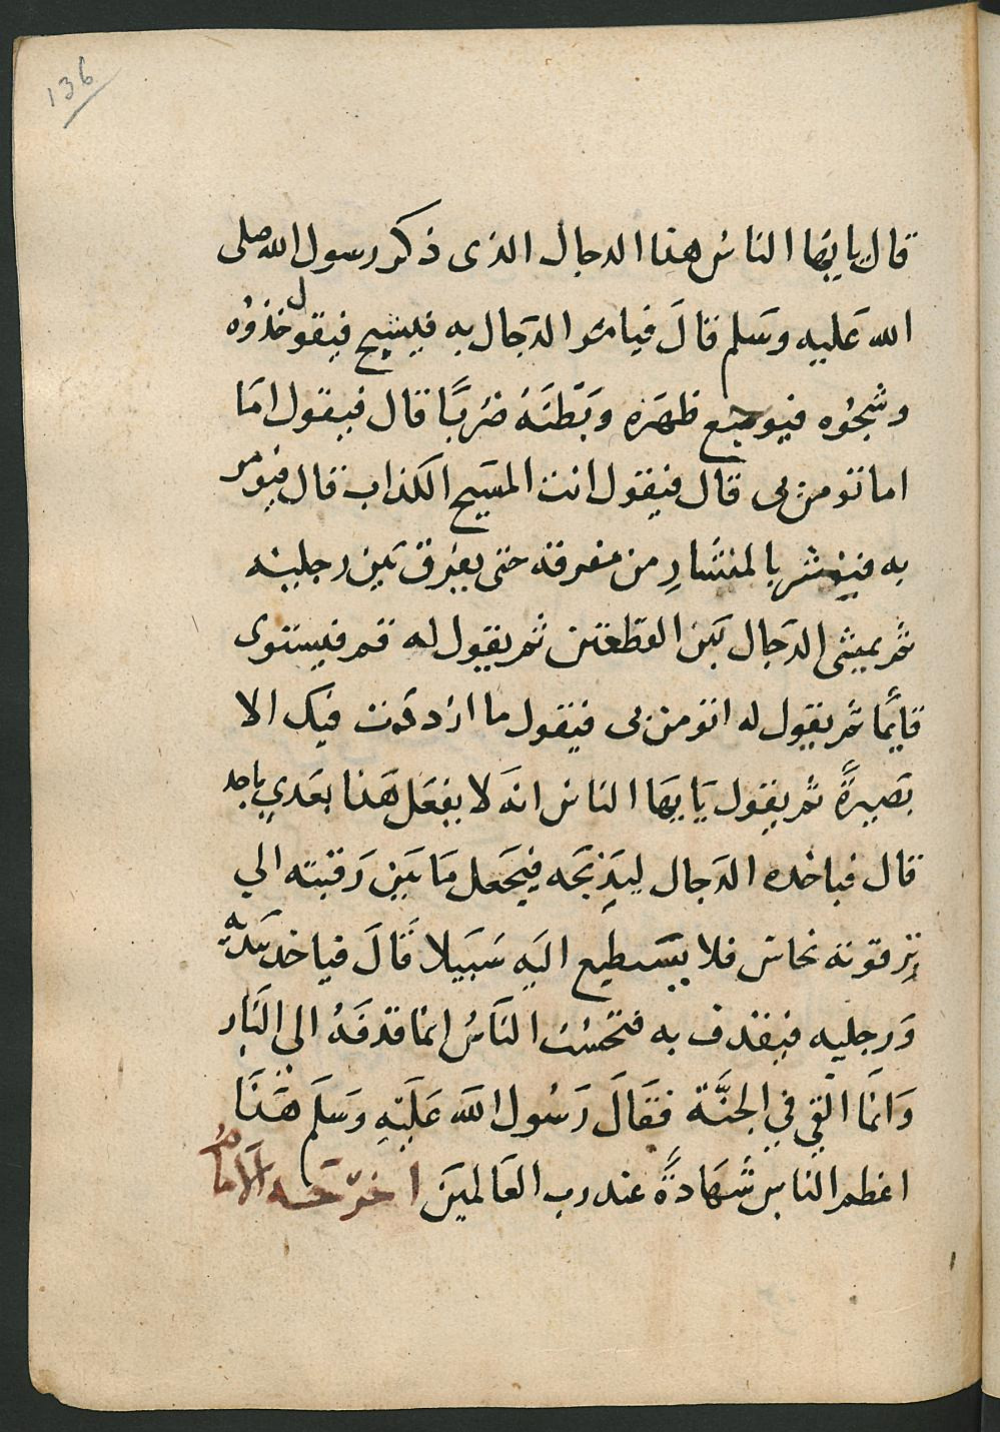 136
قال يا يها الناس هذا الدجال الذى ذكر رسول الله صلى
الله عَليه وسَلم قالَ فيامر الدَجال به فيسبح فيقول خذوُه
وشجوُه فيوسع ظهَره وَبَطنَهُ ضرَبًا قال فيقول امَا
اما تومن بى قال فيقول انت المسَيح الكذاب قال فيومر
به فينشر بالمنشَارِ من مفرقه حتى يفرق بَين رجليه
ثم يمشى الدَجال بَين القطعتين ثم يقول له قم فيستوى
قايمًا ثم يقول له اتومن بى فيقول ما ازددت فيك الا
بَصيرةً ثم يقول يَايها الناس انهَ لا يفعَل هَذا بعَدي باحد
قال فياخده الدَجال ليَذبحَه فيجَعل مَا بَين رَقبته الي
ترقوته نحاس فلا يسَتطيع اليَه سَبَيلا قَالَ فياخد بيَديه
وَرجليه فيقذف به فتحسْب الناَسُ انما قذفَهُ الى النَار
وَانَما القي في الجنَّة فقَالَ رَسُول الله عَليَهِ وَسَلم هَذَا
اعظم الناس شَهَادةً عند رب العَالمينَ اخرّجَه الامامُ